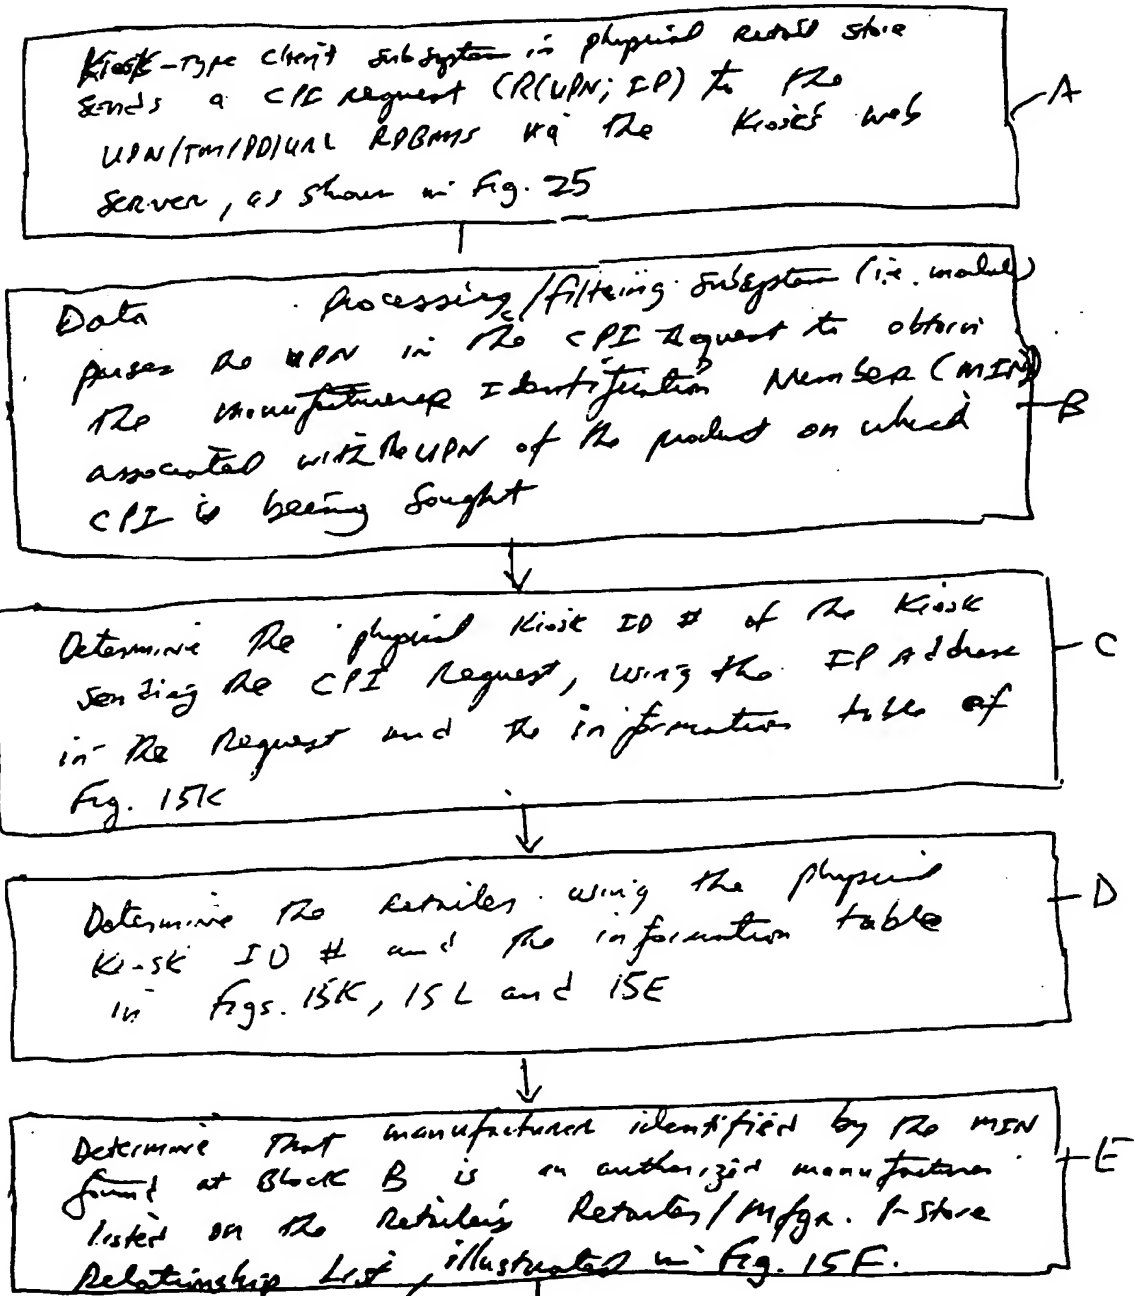 Kiosk-Type Client Subsystem in physical retail store
sends a CPI request (R(UPN; IP) to the
UPN/TM/PD/URL RDBMS via the Kiosk's web
Server, as shown in Fig. 25
A
Data Processing/filtering Subsystem (i.e. module)
parses the UPN in the CPI Request to obtain
the manufacturer Identification Number (MIN)
associated with the UPN of the product on which
CPI is being sought
B
Determine the physical Kiosk ID # of the Kiosk
sending the CPI Request, using the IP Address
in the Request and the information table of
Fig. 15K
C
Determine the retailer using the physical
Kiosk ID # and the information table
in Figs. 15K, 15L and 15E
D
Determine that manufacturer identified by the MIN
found at Block B is an authorized manufacturer
listed on the Retailer's Retailer/Mfgr. P-Store
Relationship List, illustrated in Fig. 15F.
E